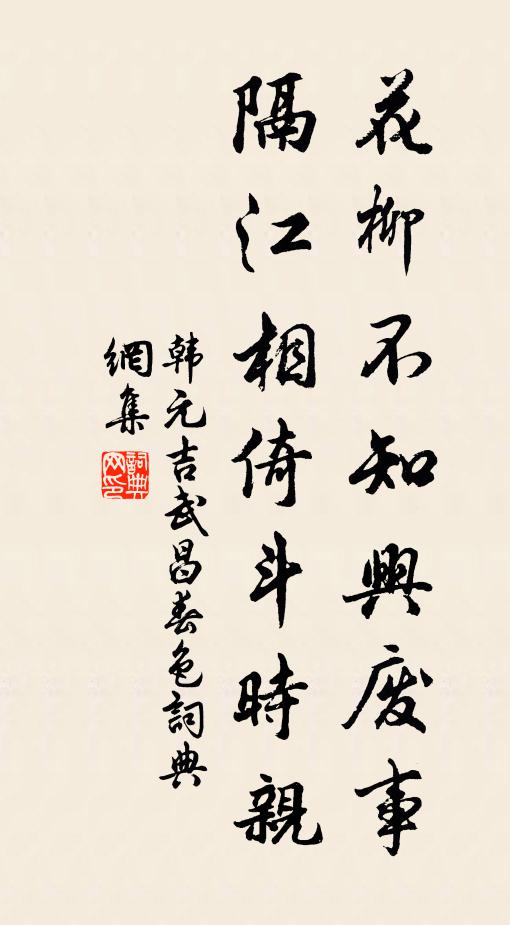 花柳不知興廢事
隔江相倚斗時親
韩元吉武昌春色詞典
網集
詞典网印